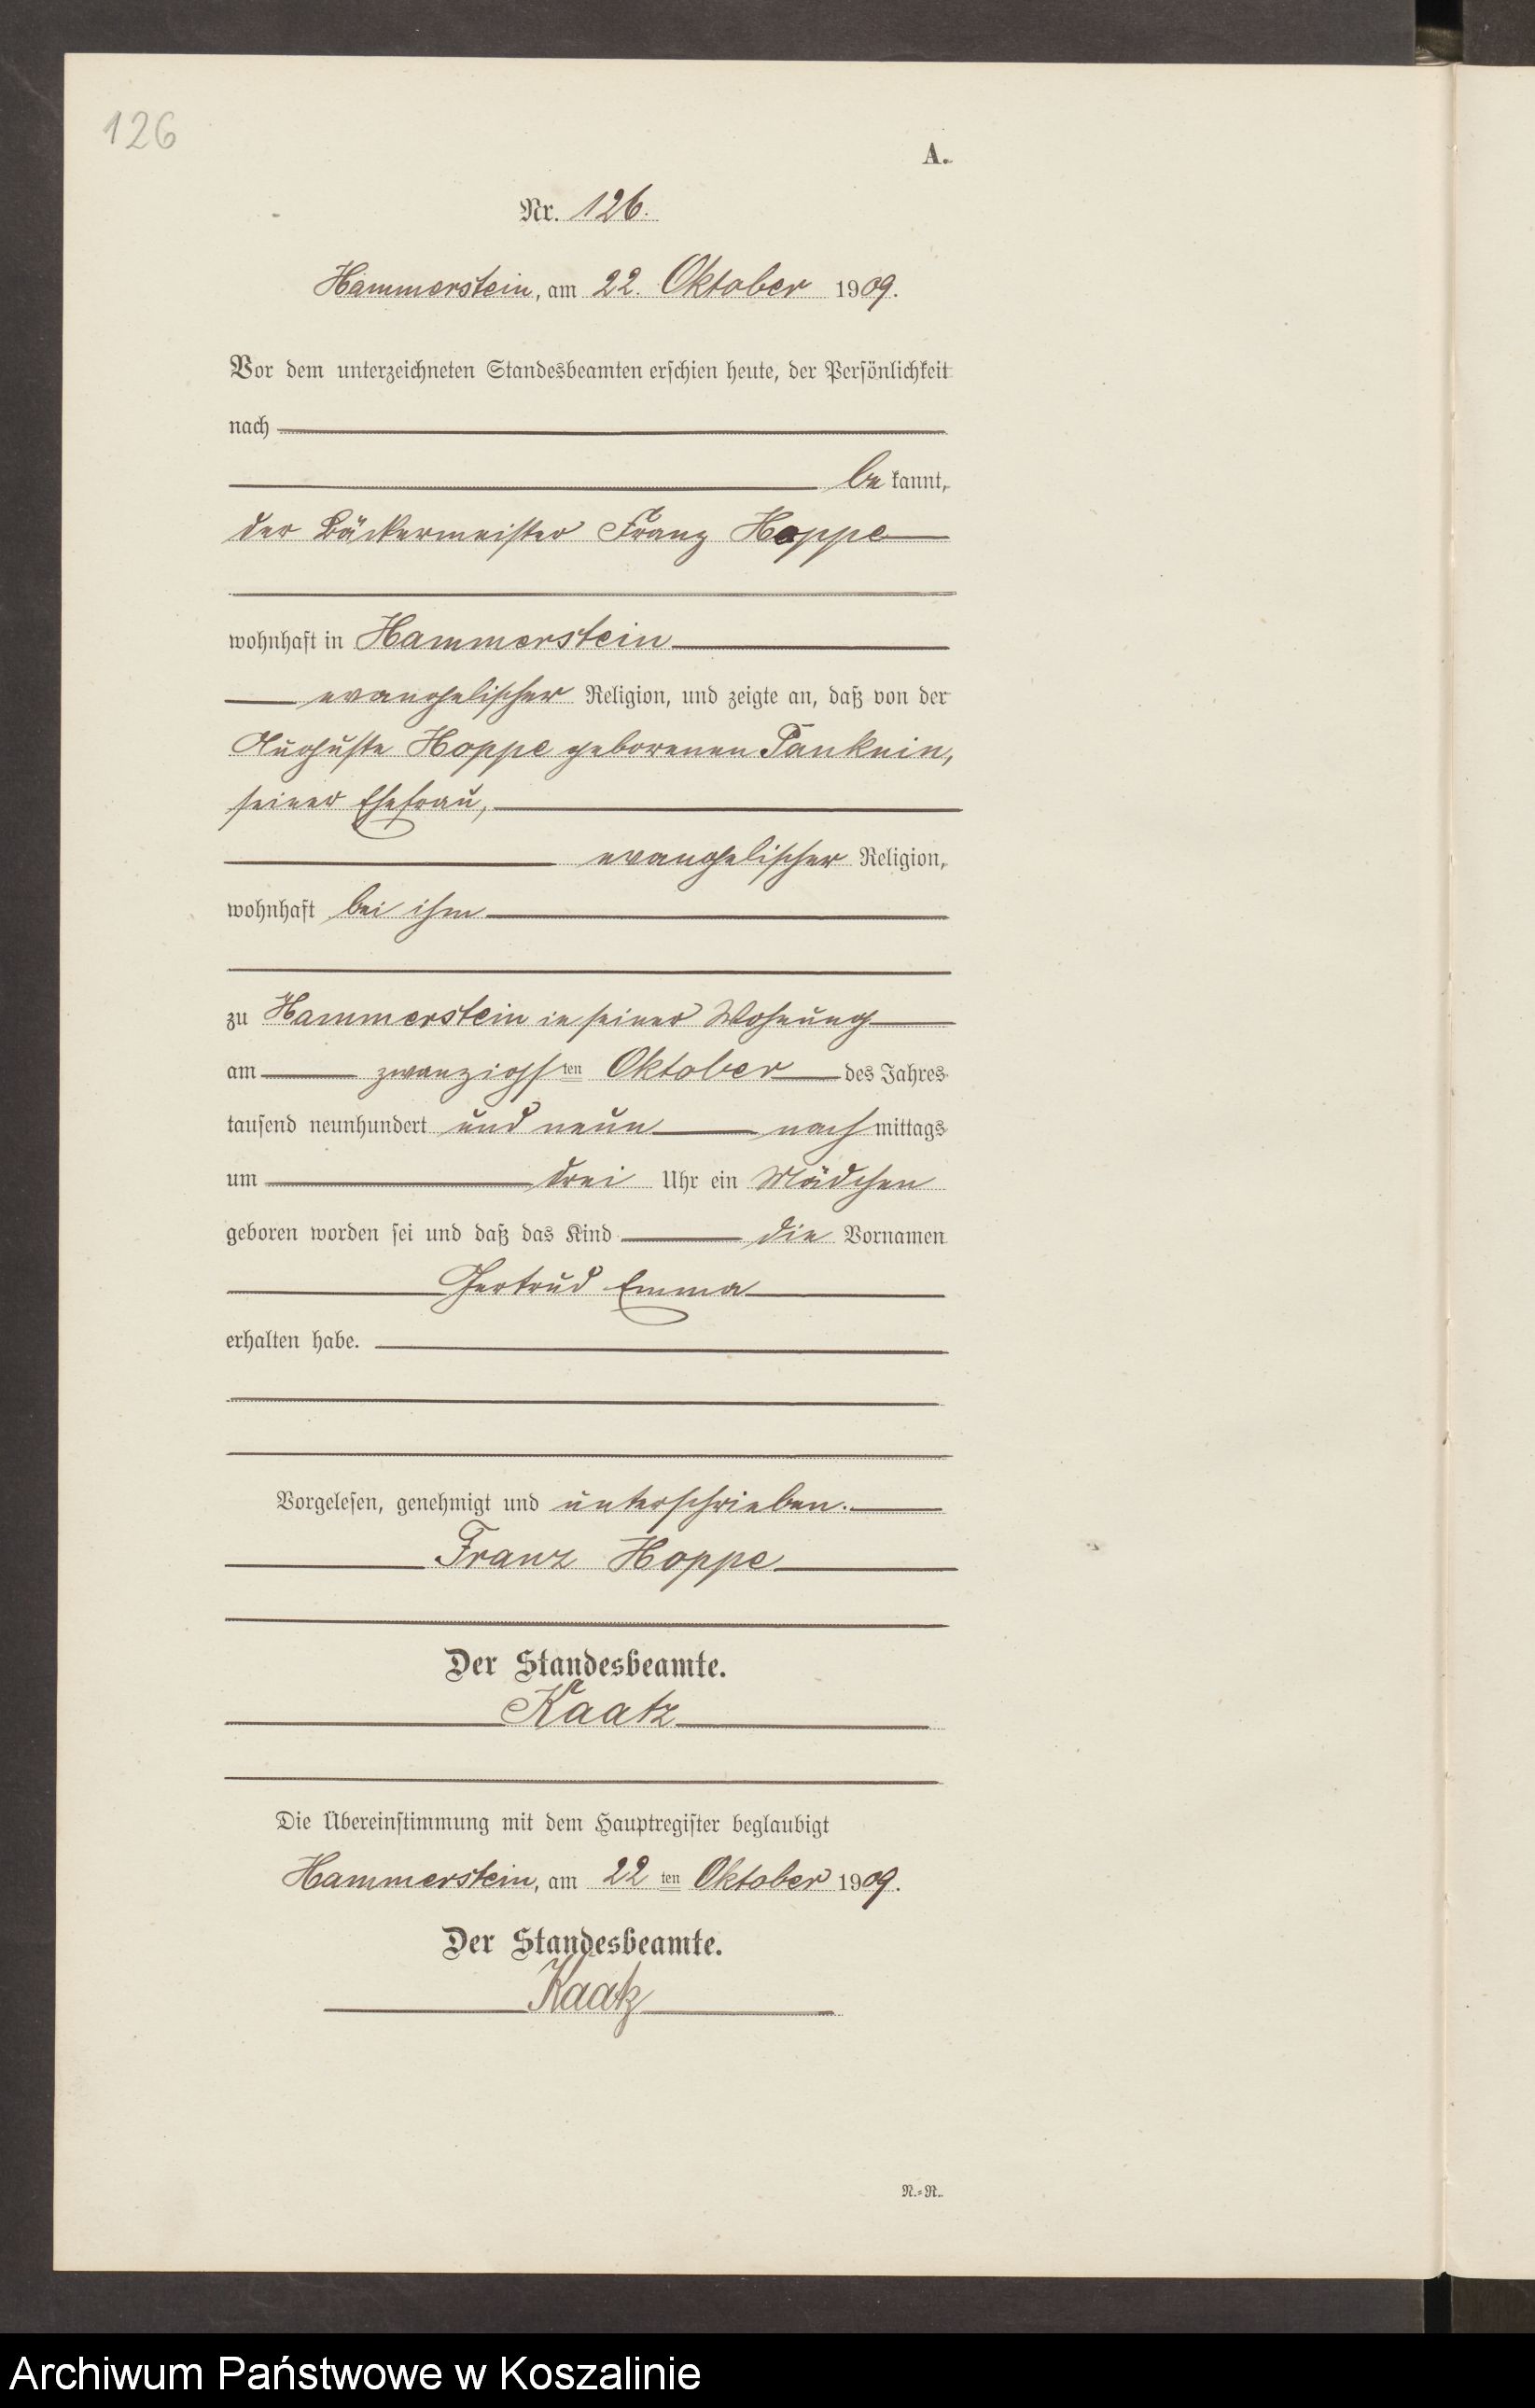 126
A.
Nr. 126.
Hammerstein, am 22. Oktober 1909.
Vor dem unterzeichneten Standesbeamten erschien heute, der Persönlichkeit
nach
be kannt,
der Bäckermeister Franz Hoppe
wohnhaft in Hammerstein
evangelischer Religion, und zeigte an, daß von der
Auguste Hoppe geborenen Panknin,
seiner Ehefrau,
evangelischer Religion,
wohnhaft bei ihm
zu Hammerstein in seiner Wohnung
am zwanzigsten Oktober des Jahres
tausend neunhundert und neun nachmittags
um drei Uhr ein Mädchen
geboren worden sei und daß das Kind die Vornamen
Gertrud Emma
erhalten habe.
Vorgelesen, genehmigt und unterschrieben.
Franz Hoppe
Der Standesbeamte.
Kaatz
Die Übereinstimmung mit dem Hauptregister beglaubigt
Hammerstein, am 22ten Oktober 1909.
Der Standesbeamte.
Kaatz
N.=R.
Archiwum Państwowe w Koszalinie